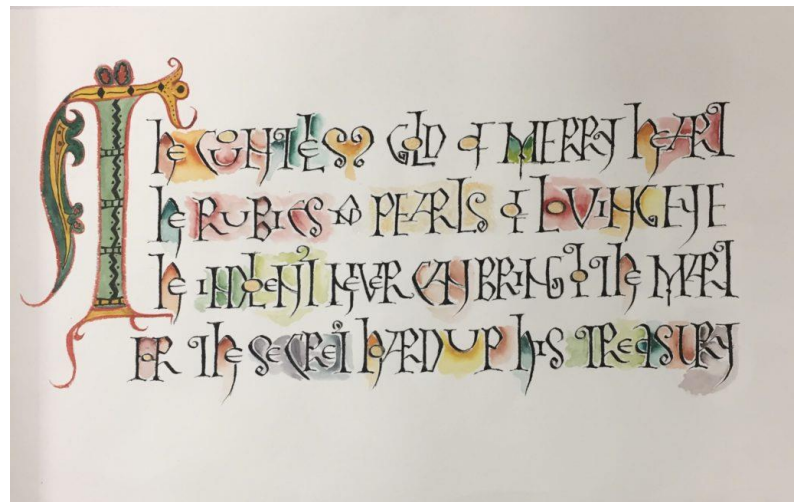 The COUNTLESS GOLD OF MERRY HEART
The RUBIES AND PEARLS OF LOVING EYE
The INDOLENT NEVER CAN BRING TO The MART
The SECRET HOARD UP HIS TREASURY